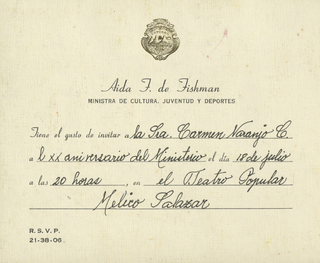 Aida F. de Fishman
MINISTRA DE CULTURA, JUVENTUD Y DEPORTES
Tiene el gusto de invitar a la Sra. Carmen Naranjo C.
a l xx aniversario del Ministerio el día 18 de julio
a las 20 horas, en el Teatro Popular
Melico Salazar
R.S.V.P.
21-38-06.